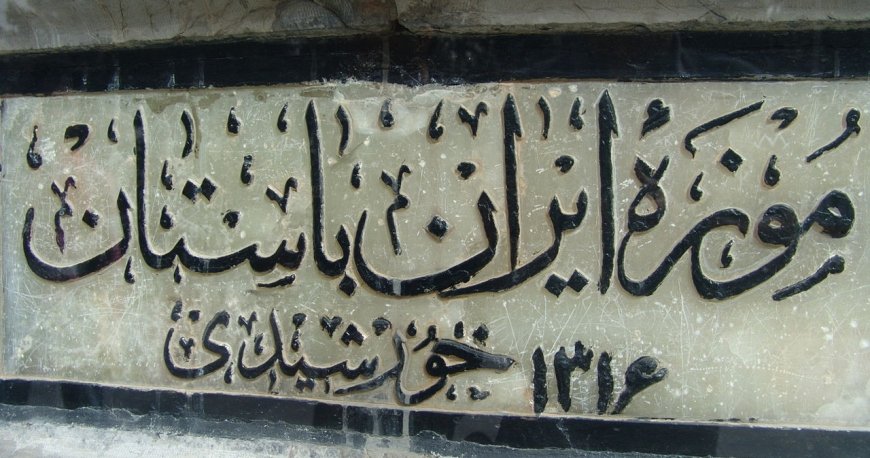 موزهٔ ایران باستان
۱۳۱۶ خورشیدی